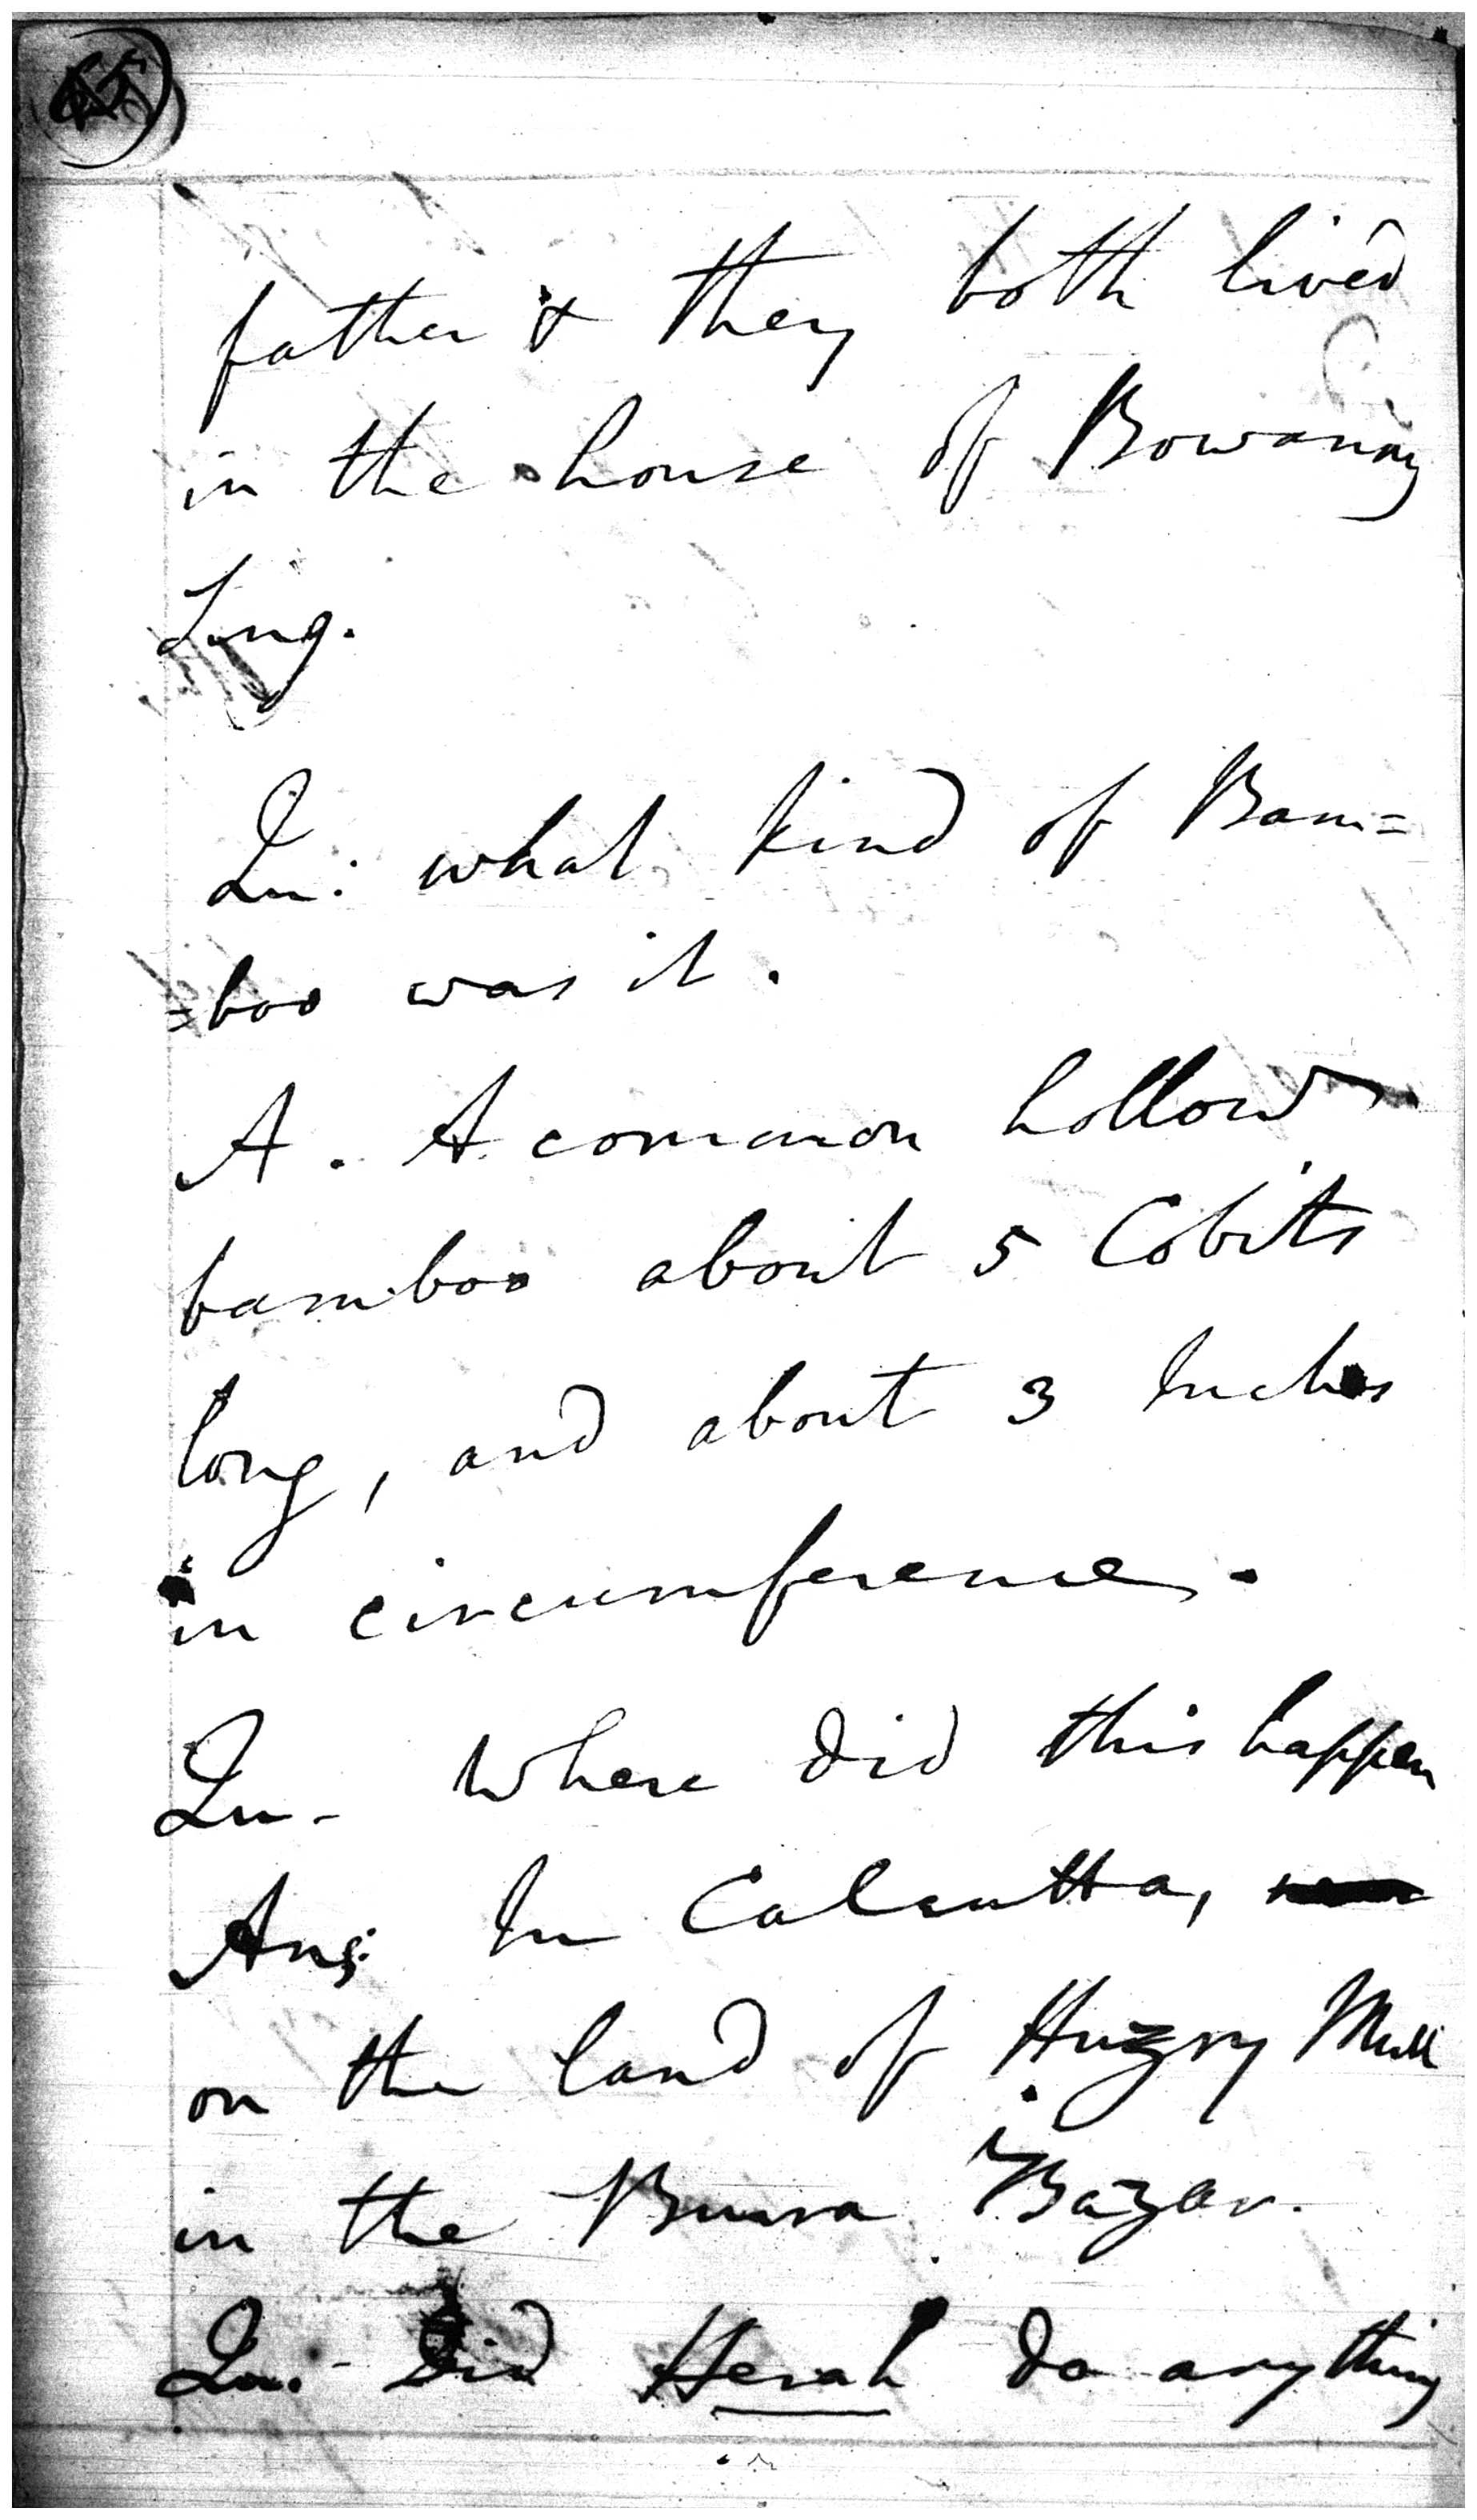 father & they both lived
in the house of Bowanny
Sing.
Qu: what kind of Bam=
=boo was it.
A. A common hollow
bamboo about 5 Cobits
long, and about 3 Inches
in circumference.
Qu- Where did this happen
Ans: In Calcutta,
on the land of Huzry Mull
in the Burra Bazar.
Qu. - Did Herah do anything